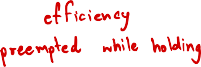 efficiency
preempted while holding